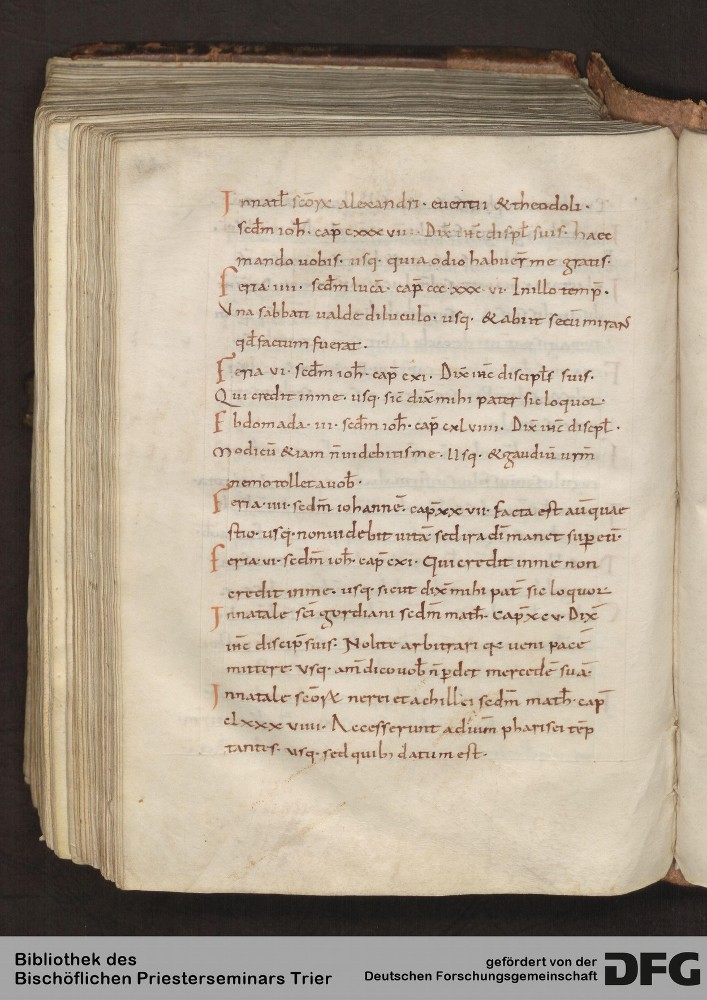 In natl̄ sc̄oꝝ alexandri · euentii & theodoli ·
scd̄m ioh̄ · cap̄ cxxxviii · Dix̄ ih̄c disipl̄ suis · haec
mando uobis · usq · quia odio habuer̄ me gratis ·
Feria · iiii · scd̄m lucā · cap̄ ccc · xxx · vi · In illo temp̄ ·
Vna sabbati ualde diluculo · usq · & abiit secū mirans
qd̄ factum fuerat ·
Feria vi · scd̄m ioh̄ · cap̄ cxi · Dix̄ ih̄c discipl̄s suis ·
Qui credit in me · usq · sic̄ dix̄ mihi pater sic loquor ·
Ebdomada · iii · scd̄m ioh̄ · cap̄ cxlviiii · Dix̄ ih̄c discpl̄ ·
Modicū & iam n̄ uidebitis me · Usq · & gaudiū ur̄m
nemo tollet a uob̄ ·
Feria · iiii · scd̄m iohannē · cap̄ xxvii · Facta est aū quae
stio · usq · non uidebit uitā sed ira dī manet sup eū ·
Feria · vi · scd̄m ioh̄ · cap̄ cxi · Qui credit in me non
credit in me · usq · sicut dix̄ mihi pat̄ sic loquor
In natale sc̄i gordiani scd̄m math̄ · Cap̄ xcv · Dix̄
ih̄c discip̄ suis · Nolite arbitrari qꝫ ueni pacē
mittere · usq · am̄ dico uob̄ n̄ pdet mercedē suā ·
In natale sc̄oꝝ nerei et achillei scd̄m math̄ · cap̄
clxxxviiii · Accesserunt ad ih̄m pharisei tēp
tantes · usq · sed quib; datum est ·
Bibliothek des
Bischöflichen Priesterseminars Trier
gefördert von der
Deutschen Forschungsgemeinschaft
DFG